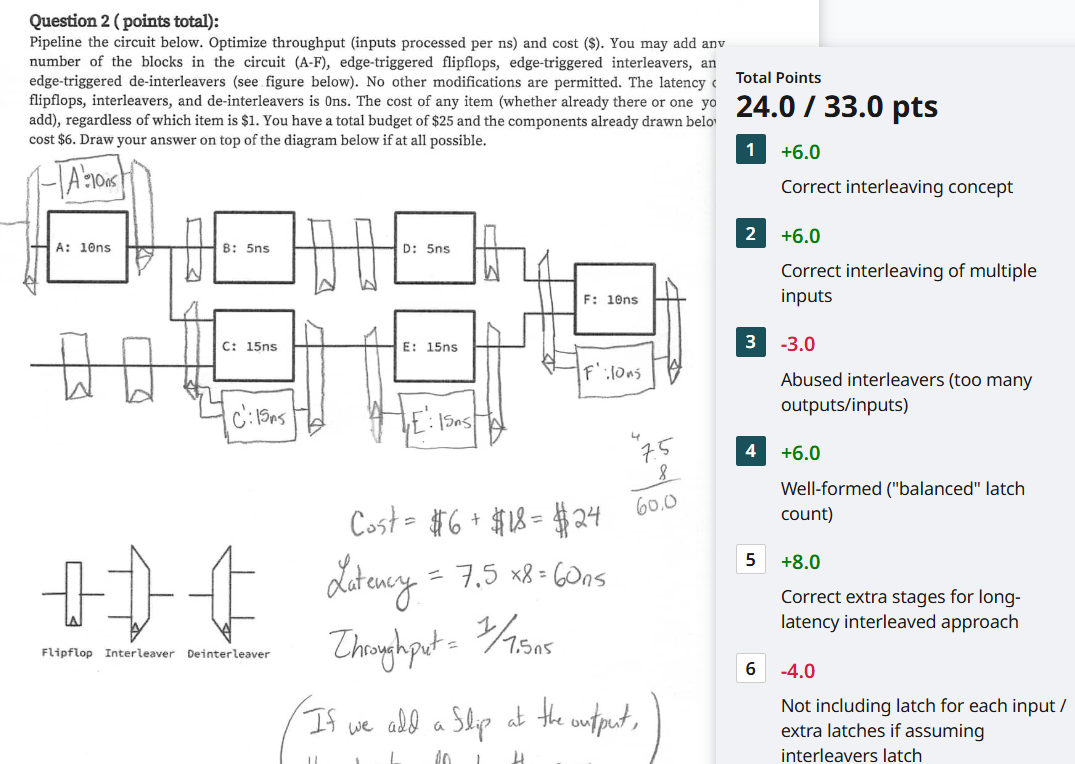 Question 2 ( points total):
Pipeline the circuit below. Optimize throughput (inputs processed per ns) and cost ($). You may add any
number of the blocks in the circuit (A-F), edge-triggered flipflops, edge-triggered interleavers, an
edge-triggered de-interleavers (see figure below). No other modifications are permitted. The latency
flipflops, interleavers, and de-interleavers is 0ns. The cost of any item (whether already there or one yo
add), regardless of which item is $1. You have a total budget of $25 and the components already drawn belo
cost $6. Draw your answer on top of the diagram below if at all possible.
A':10ns
A: 10ns
B: 5ns
D: 5ns
F: 10ns
C: 15ns
E: 15ns
F':10ns
C':15ns
E':15ns
4
7.5
8
60.0
Cost = $6 + $18 = $24
Latency = 7.5 x8 = 60ns
Throughput = 1/7.5ns
Flipflop Interleaver Deinterleaver
(If we add a flip at the output,
Total Points
24.0 / 33.0 pts
1 +6.0
Correct interleaving concept
2 +6.0
Correct interleaving of multiple
inputs
3 -3.0
Abused interleavers (too many
outputs/inputs)
4 +6.0
Well-formed ("balanced" latch
count)
5 +8.0
Correct extra stages for long-
latency interleaved approach
6 -4.0
Not including latch for each input /
extra latches if assuming
interleavers latch